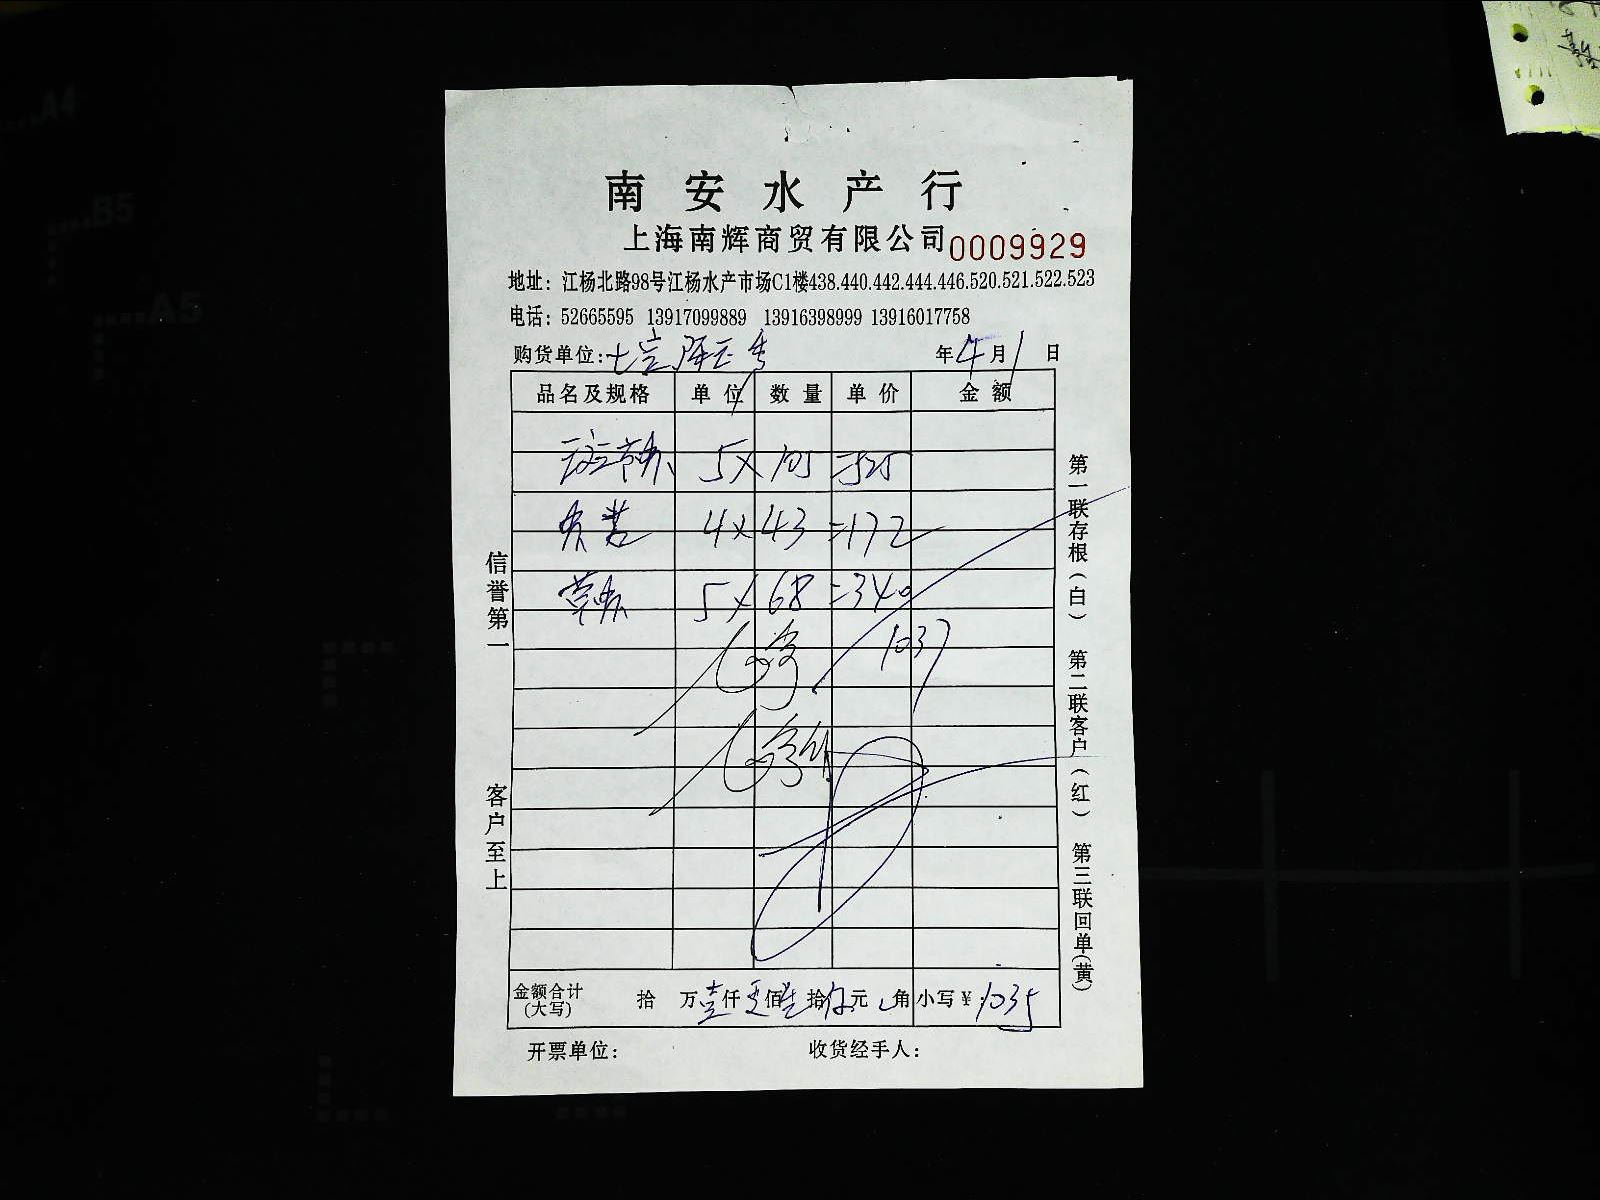 南安水产行
上海南辉商贸有限公司 0009929
地址：江杨北路98号江杨水产市场C1楼438.440.442.444.446.520.521.522.523
电话：52665595 13917099889 13916398999 13916017758
购货单位： 年4月1日
品名及规格 单位 数量 单价 金额
5× 105 =525
4× 43 =172
5× 68 =340
1037
金额合计 拾 万壹仟 佰 拾 元 角 小写￥：1035
(大写)
开票单位： 收货经手人：
信誉第一 客户至上
第一联存根（白） 第二联客户（红） 第三联回单(黄)
A4
B5
A5